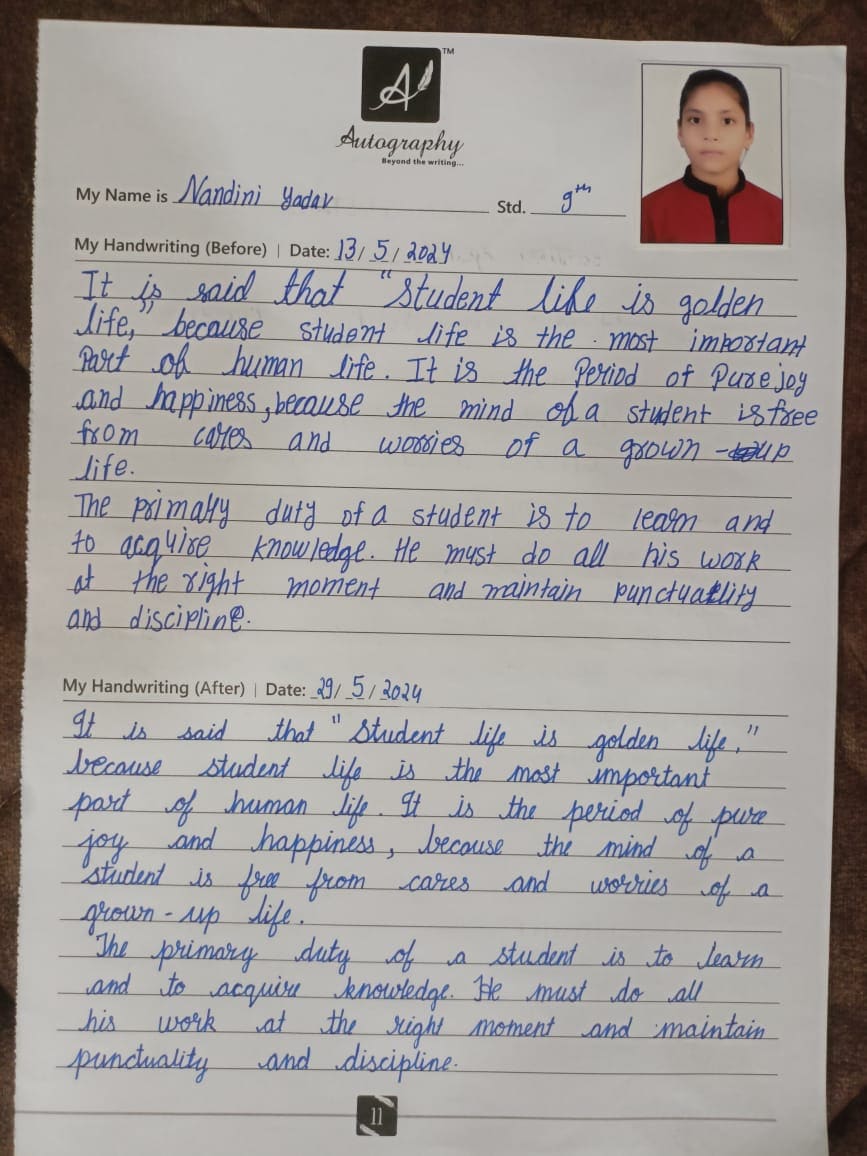 TM
A
Autography
Beyond the writing...
My Name is Nandini Yadav Std. 9th
My Handwriting (Before) | Date: 13/5/2024
It is said that "student life is golden
life," because student life is the most important
Part of human life. It is the Period of Pure joy
and happiness, because the mind of a student is free
from cares and worries of a grown-up
life.
The primary duty of a student is to learn and
to acquire knowledge. He must do all his work
at the right moment and maintain punctuality
and discipline.
My Handwriting (After) | Date: 29/5/2024
It is said that "Student life is golden life,"
because student life is the most important
part of human life. It is the period of pure
joy and happiness, because the mind of a
student is free from cares and worries of a
grown-up life.
The primary duty of a student is to learn
and to acquire knowledge. He must do all
his work at the right moment and maintain
punctuality and discipline.
11